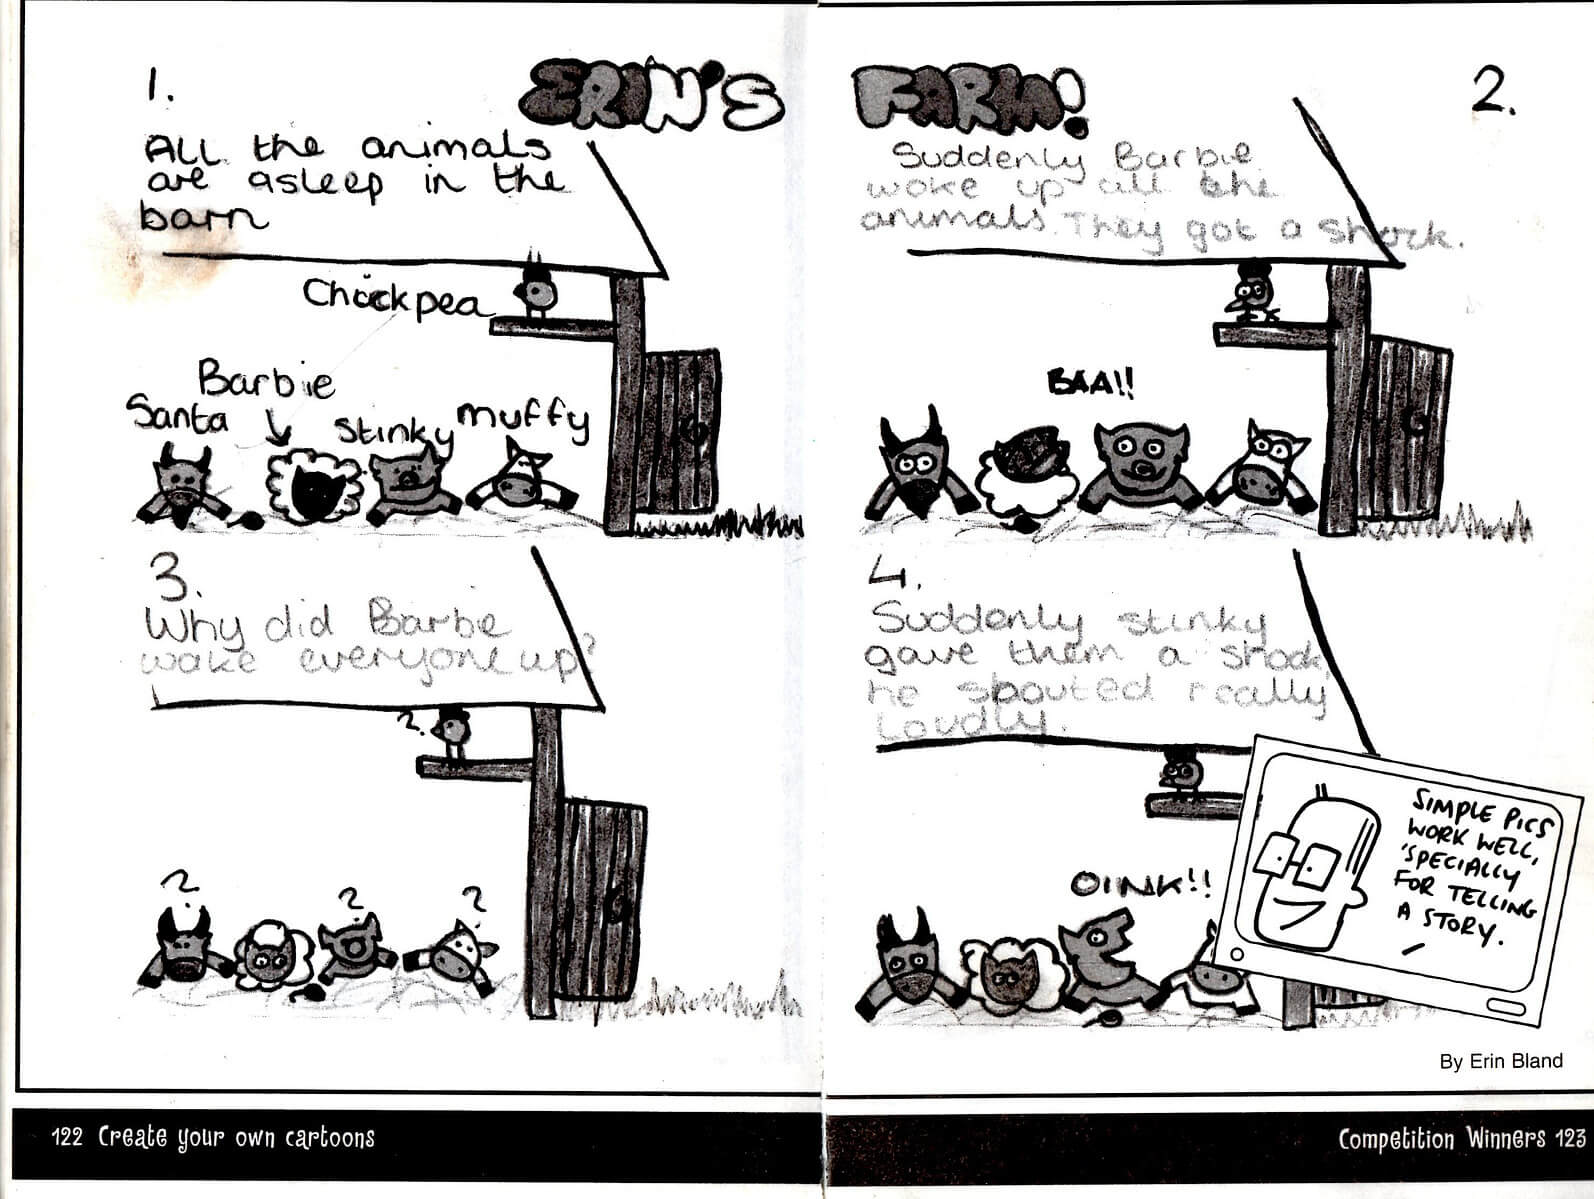 ERIN'S FARM!
1.
All the animals
are asleep in the
barn
Chickpea
Barbie
Santa
Stinky
muffy
2.
Suddenly Barbie
woke up all the
animals. They got a shock.
BAA!!
3.
Why did Barbie
wake everyone up?
?
?
?
?
4.
Suddenly stinky
gave them a shock
he shouted really
Loudly.
OINK!!
SIMPLE PICS
WORK WELL,
'SPECIALLY
FOR TELLING
A STORY.
By Erin Bland
122 Create your own cartoons
Competition Winners 123